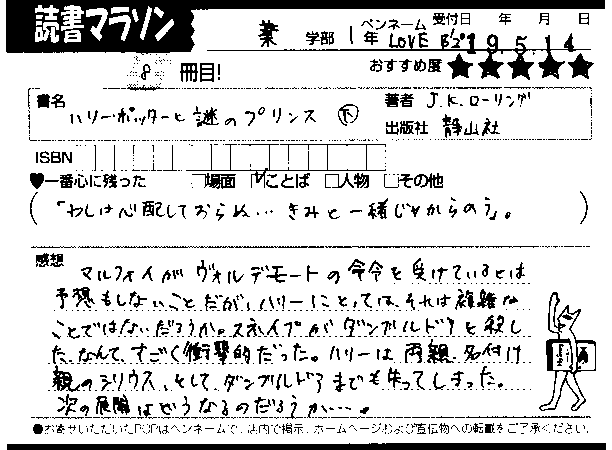 読書マラソン
薬 学部 1年 ペンネーム LOVE B'z 受付日 年 月 日 19.5.14
8 冊目! おすすめ度 ★★★★★
書名 ハリー・ポッターと謎のプリンス 下
著者 J.K.ローリング
出版社 静山社
ISBN
♥一番心に残った □場面 ☑ことば □人物 □その他
(「わしは心配しておらん…きみと一緒じゃからのう」。)
感想
マルフォイがヴォルデモートの命令を受けているとは
予想もしないことだが、ハリーにとっては、それは複雑な
ことではないだろうか。スネイプがダンブルドアを殺し
た、なんて、すごく衝撃的だった。ハリーは、両親、名付け
親のシリウス、そして、ダンブルドアまでも失ってしまった。
次の展開はどうなるのだろうか…。
●お寄せいただいたPOPはペンネームで、店内で掲示、ホームページおよび宣伝物への転載をご了承ください。